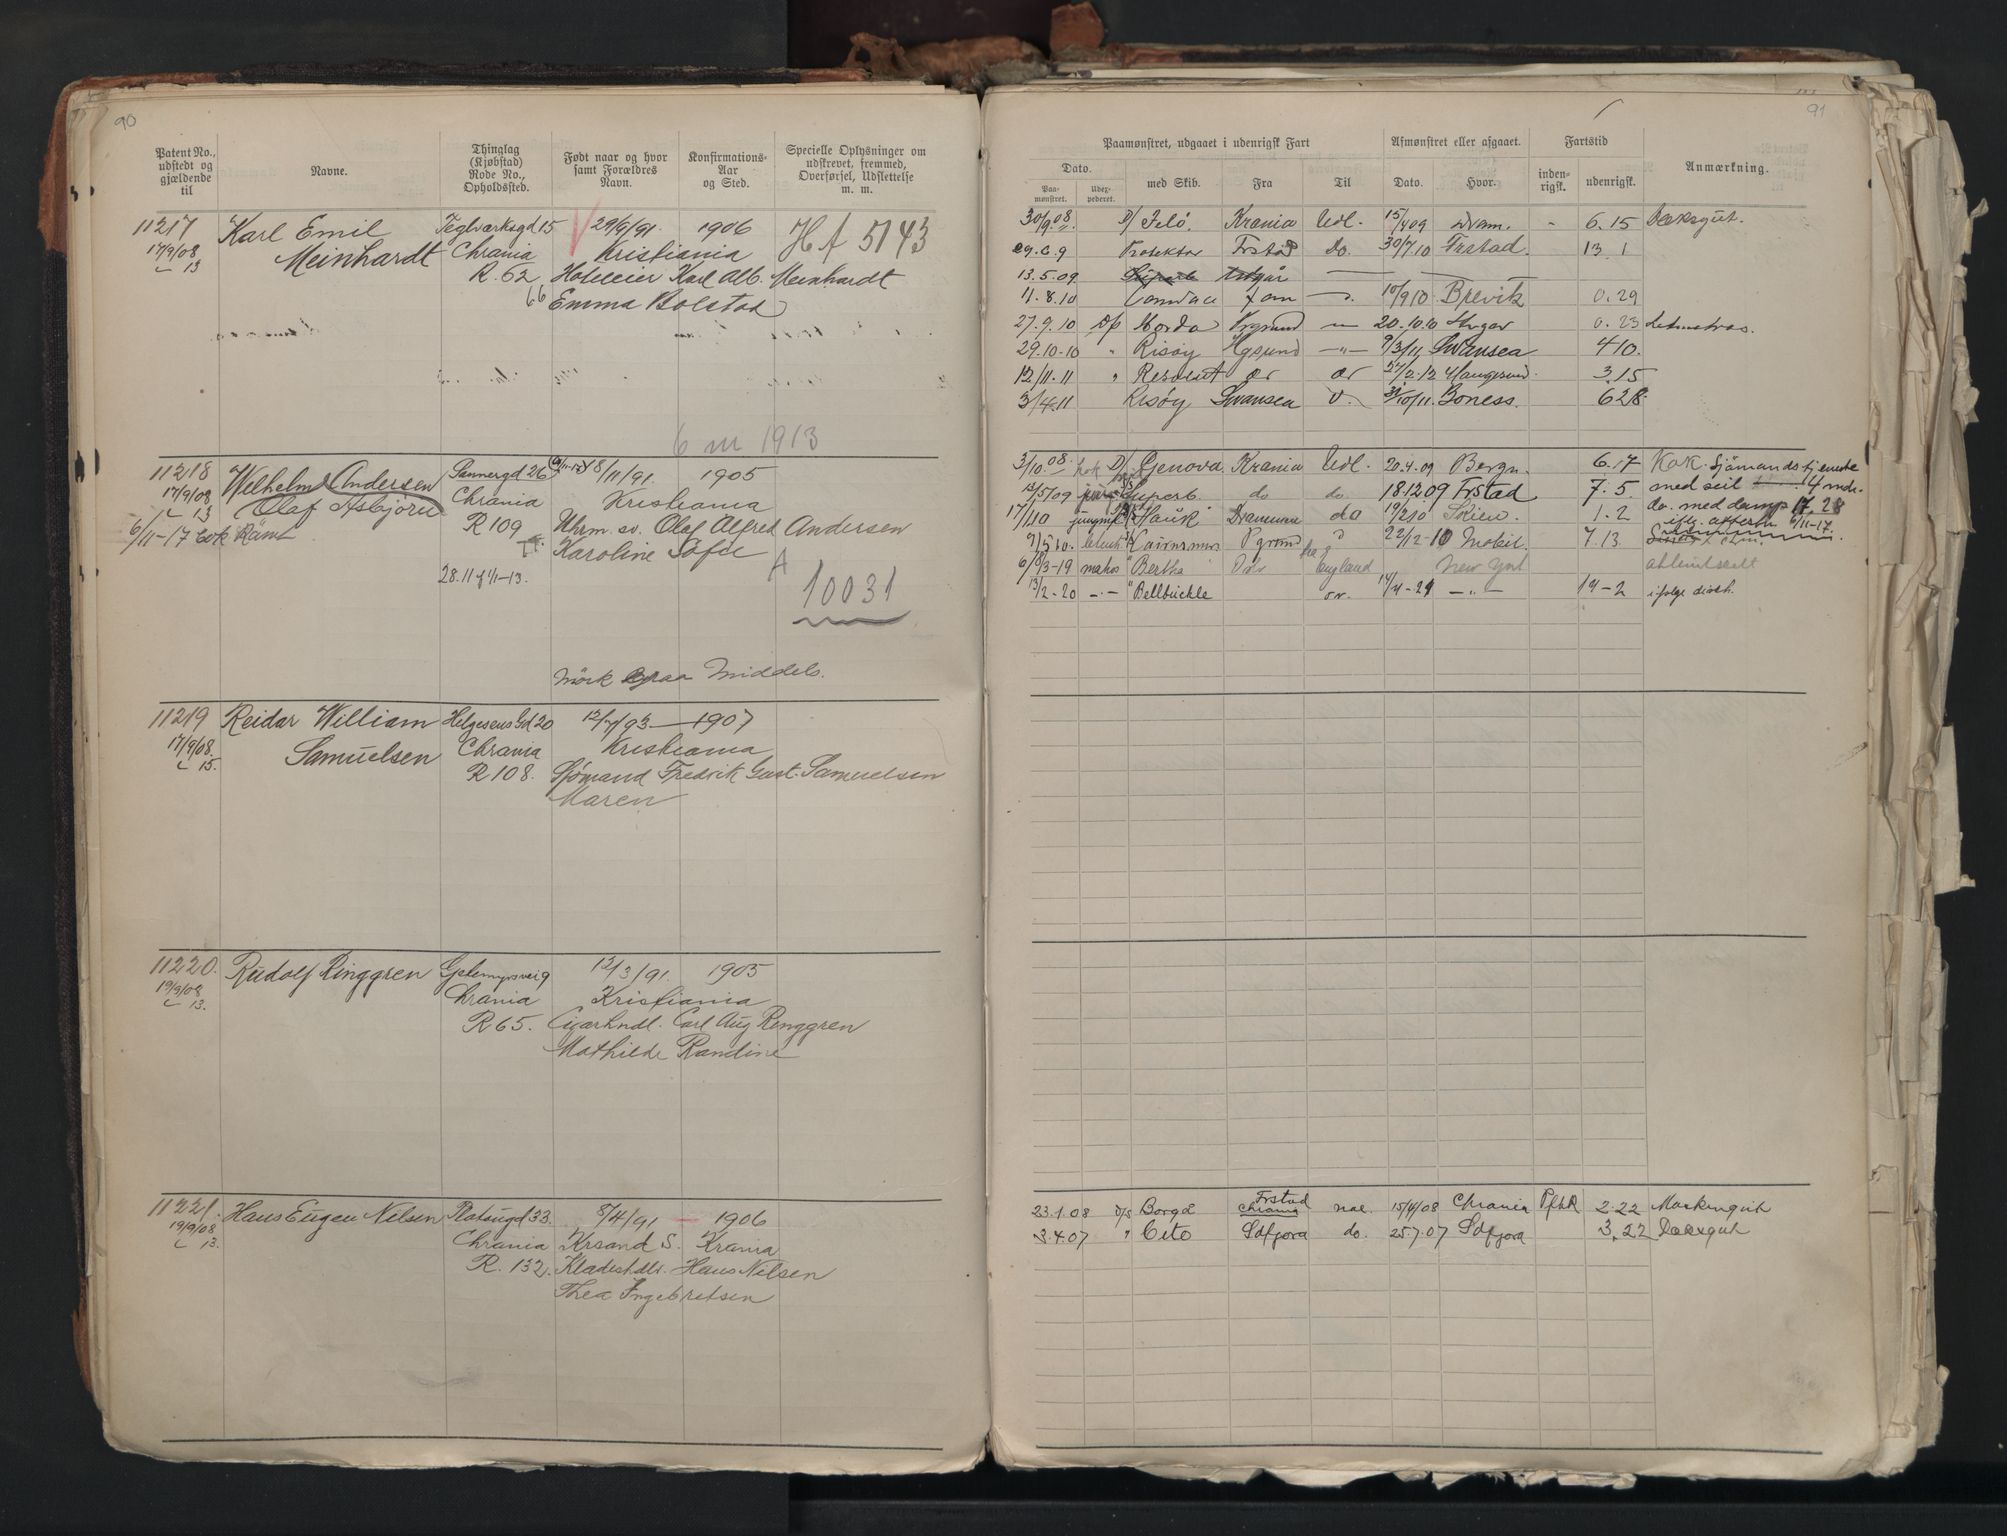 90
Patent No., udstedt og gjældende til
Navne.
Thinglag (Kjøbstad) Rode No., Opholdssted.
Født naar og hvor samt Forældres Navn.
Konfirmations-Aar og Sted.
Specielle Oplysninger om udskrevet, fremmed, Overførsel, Udslettelse m. m.
11217 Karl Emil Teglværksgd 15 29/6/91. 1906 Hf 5143
17/9/08 Meinhardt Chrania Kristiania
13 R. 62 Hoteleier Karl Alb. Meinhardt
66 Emma Bolstad
6 m 1913
11218 Welhelm Andersen Sannergd 26 18/11/91. 1905
17/9/08 Olaf Asbjørn Chrania Kristiania
13 R 109 Uhrm. sv. Olaf Alfred Andersen
6/11-17 Karoline Sofie
28.11 A
10031
Mörk graa Middels.
11219 Reidar William Helgesens Gd 20 12/7/93 — 1907
17/9/08 Samuelsen Chrania Kristiania
15. R 108. Sjømand Fredrik Gust. Samuelsen
Maren
11220. Rudolf Ringgren 13/3/91. 1905
19/9/08 Chrania Kristiania
13. R 65. Cigarhndl. Carl Aug Renggren
Mathilde Randine
11221. Hans Eugen Nilsen Platougd 33. 8/4/91 — 1906
19/9/08 Chrania Krsand S. Krania
13. R. 132. Hans Nilsen
Thea Ingebretsen
91
Paamønstret, udgaaet i udenrigsk Fart
Afmønstret eller afgaaet.
Fartstid
Anmærkning.
Dato.
Paa-mønstret.
Udex-pederet.
med Skib.
Fra
Til
Dato.
Hvor.
inden-rigsk.
udenrigsk.
30/9.08 D/ Jelö Krania Udl. 15/4 09 Dram. - 6.15 Dæksgut.
29.6.9 Protektor Frstad Do. 30/7.10 Frstad. 13.1
13.5.09 Superb
11.8.10 fam 10/9 10 Brevik 0.29
27.9.10 D/ Norda Prgrund — 20.10.10 0.23
29.10.10 " Risøy Hgsund —"— 9/3/11, Swansea 4 10.
12/11.11 " Resolut 3.15
3/4.11 Risøy Swansea 31/10/11. Boness. 6 28.
3/10.08. kok D/ Gjenova Krania Udl. 20.4.09 Bergn. 6.17 Kok. Sjømandstjeneste
13/5/09 Superb. do do. 18.12 09 Frstad 7.5. med seil 4 mdr.
17/1 10 jungmd Hauk Drammen do 19/2 10 Skien. 1.2 do. med damp 17.28
9/5 10. Pgrund 22/12-10 Mobil. 7.13. 6/11-17.
matros " Bertha England New York
13/2-20 —·— " Bellbuckle —"— 14-2 ifølge
23.1.08 D/s Borgå Frstad Chrania 15/4/08 Chrania 2.22 Maskingut
3.4.07 " Cito Sdfjora do. 25.7.07 Sdfjora 3.22 Dæksgut